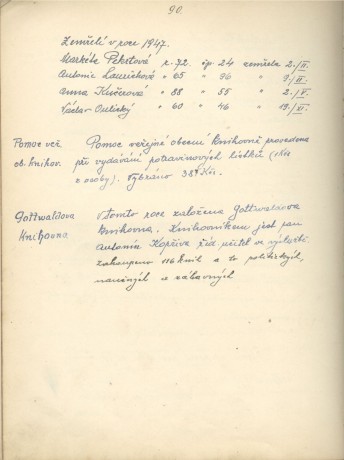 90
Zemřelí v roce 1947.
Markéta r. 72. čp. 24 zemřela 2./II.
Antonie " 65 " 96 " 9./III.
Anna Kučerová " 88 " 55 " 2./V.
Václav " 60 " 46 " 19./XI.
Pomoc veř.
ob. knihov.
Pomoc veřejné obecní knihovně provedena
při vydávání potravinových lístků (1 Kčs
z osoby). Vybráno 387 Kčs.
Gottwaldova
Knihovna
V tomto roce založena Gottwaldova
knihovna. Knihovníkem jest pan
Antonín Kopřiva říd. učitel ve výslužbě
zakoupeno 116 knih a to politických,
naučných a zábavných